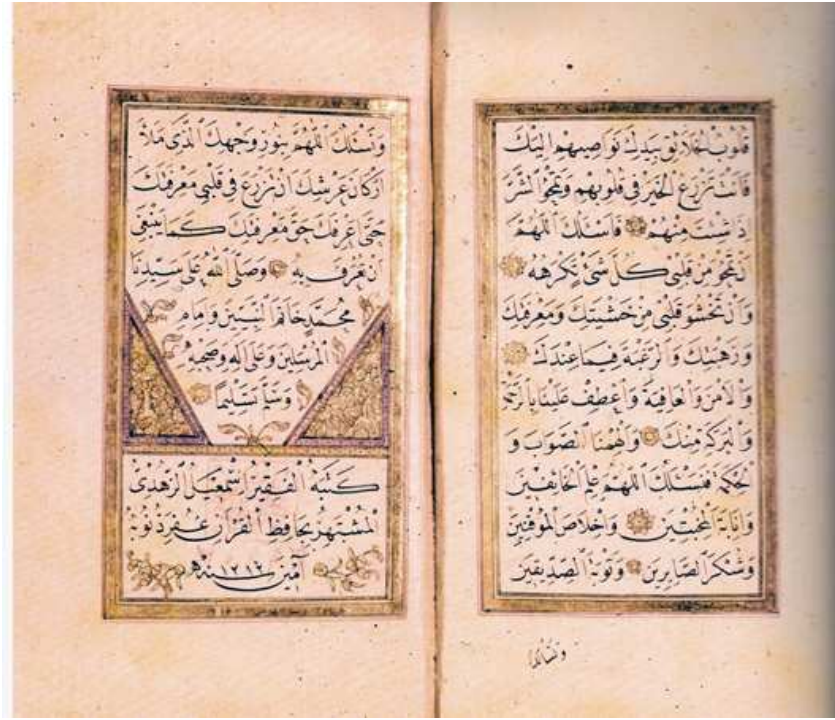 قُلُوبُ الْخَلَائِقِ بِيَدِكَ نَوَاصِيهِمْ اِلَيْكَ
فَاَنْتَ تَزْرَعُ الْخَيْرَ فِي قُلُوبِهِمْ وَتَمْحُو الشَّرَّ
اِذَا شِئْتَ مِنْهُمْ فَاَسْئَلُكَ اللّٰهُمَّ
اَنْ تَمْحُوَ مِنْ قَلْبِي كُلَّ شَئٍ تَكْرَهُهُ
وَاَنْ تَحْشُوَ قَلْبِي مِنْ خَشْيَتِكَ وَمَعْرِفَتِكَ
وَرَهْبَتِكَ وَالرَّغْبَةَ فِيمَا عِنْدَكَ
وَالْاَمْنَ وَالْعَافِيَةَ وَاعْطِفْ عَلَيْنَا بِالرَّحْمَةِ
وَالْبَرَكَةِ مِنْكَ وَاَلْهِمْنَا الصَّوَابَ وَ
الْحِكْمَةَ فَنَسْئَلُكَ اللّٰهُمَّ عِلْمَ الْخَائِفِينَ
وَاِنَابَةَ الْمُخْبِتِينَ وَاِخْلَاصَ الْمُوقِنِينَ
وَشُكْرَ الصَّابِرِينَ وَتَوْبَةَ الصِّدِّيقِينَ
وَنَسْئَلُكَ اللّٰهُمَّ بِنُورِ وَجْهِكَ الَّذِي مَلَأَ
اَرْكَانَ عَرْشِكَ اَنْ تَزْرَعَ فِي قَلْبِي مَعْرِفَتَكَ
حَتّٰى اَعْرِفَكَ حَقَّ مَعْرِفَتِكَ كَمَا يَنْبَغِي
اَنْ تُعْرَفَ بِهِ وَصَلَّى اللّٰهُ عَلٰى سَيِّدِنَا
مُحَمَّدٍ خَاتَمِ النَّبِيِّينَ وَاِمَامِ
الْمُرْسَلِينَ وَعَلٰى اٰلِهِ وَصَحْبِهِ
وَسَلَّمَ تَسْلِيمًا
كَتَبَهُ الْفَقِيرُ اِسْمٰعِيلُ الزُّهْدِي
الْمُشْتَهِرُ بِحَافِظِ الْقُرْاٰنِ غُفِرَ ذُنُوبُهُ
اٰمِينَ سنة ١٢١٢